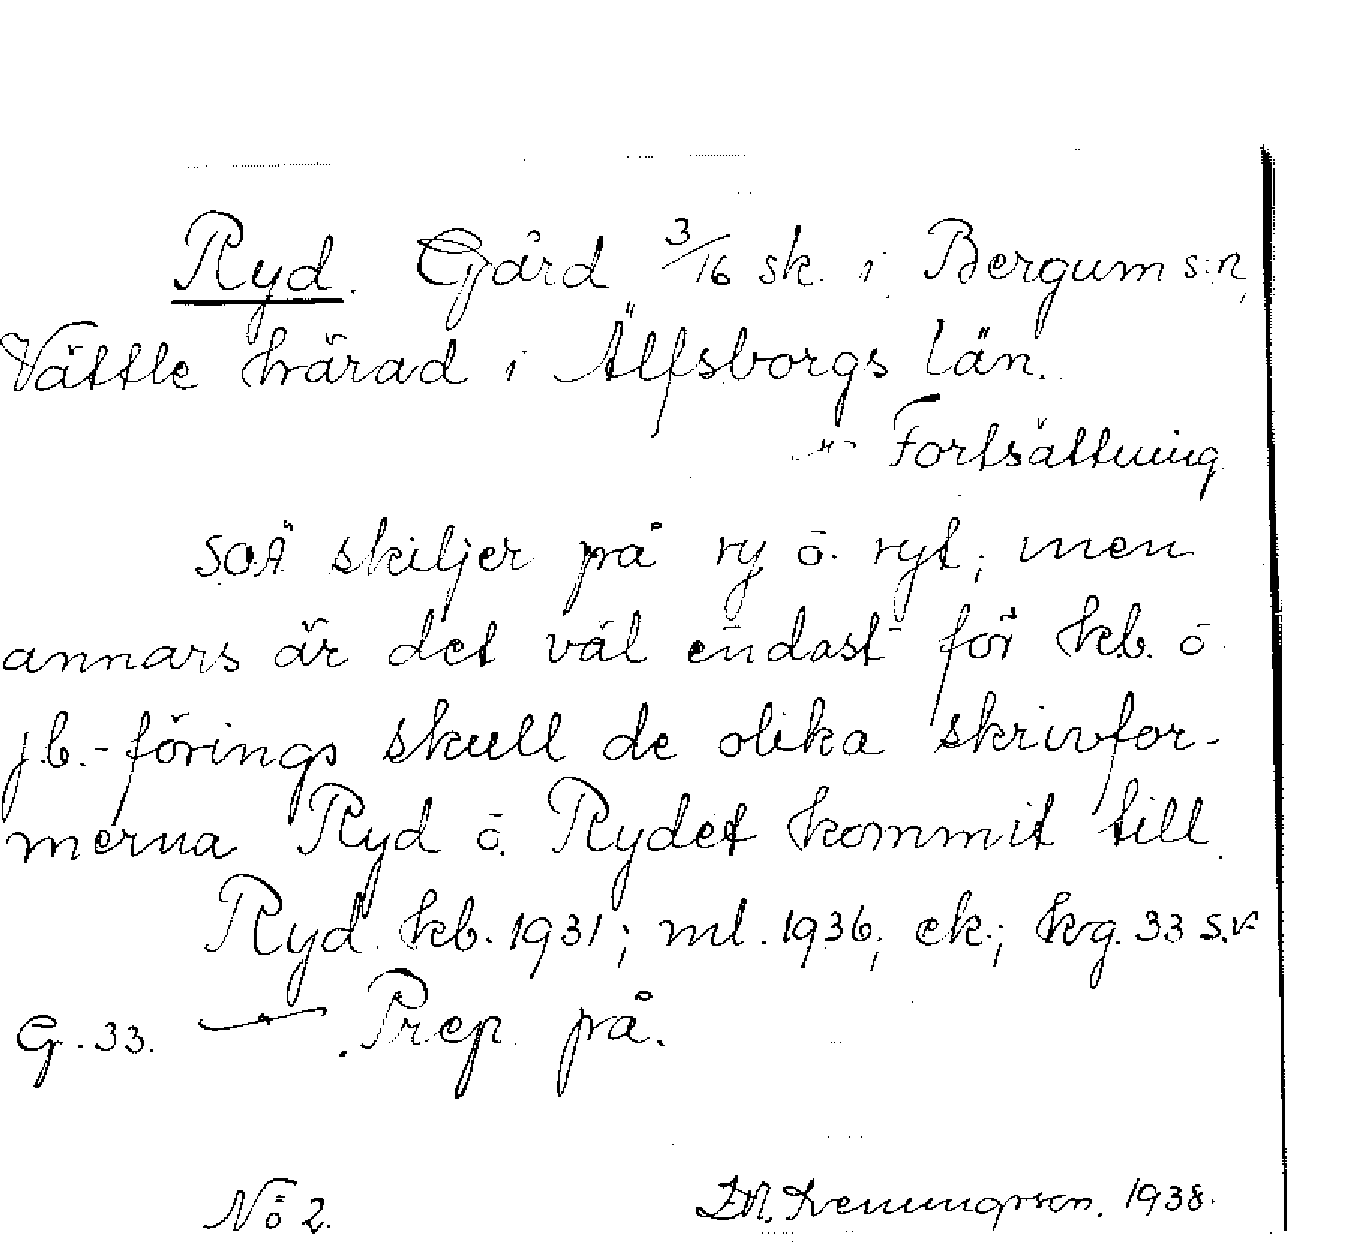 Ryd. Gård 3/16 sk. i Bergum s:n,
Vättle härad i Älfsborgs län.
Fortsättning
SOÄ skiljer på ry o. ryt; men
annars är det väl endast för kb. o
jb.-förings skull de olika skrivfor-
merna Ryd o. Rydet kommit till.
Ryd kb. 1931; ml. 1936; ek; kg. 33 s.v
G. 33. Prep på.
No 2. 1938.